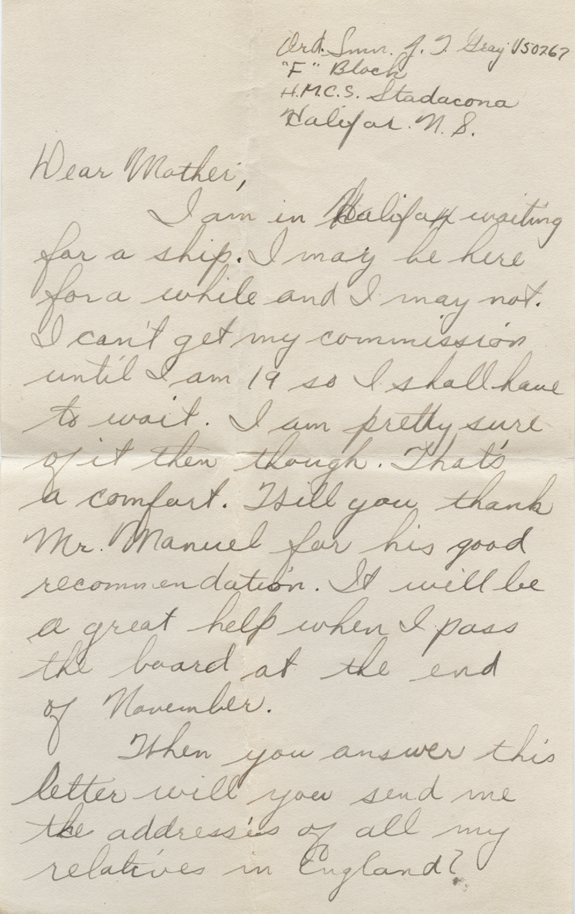 Ord. Smn. J. T Gray V50267
"F" Block
H.M.C.S. Stadacona
Halifax. N. S.
Dear Mother,
I am in Halifax waiting
for a ship. I may be here
for a while and I may not.
I can't get my commission
until I am 19 so I shall have
to wait. I am pretty sure
of it then though. That's
a comfort. Will you thank
Mr. Manuel for his good
recommendation. It will be
a great help when I pass
the board at the end
of November.
When you answer this
letter will you send me
the addresses of all my
relatives in England?